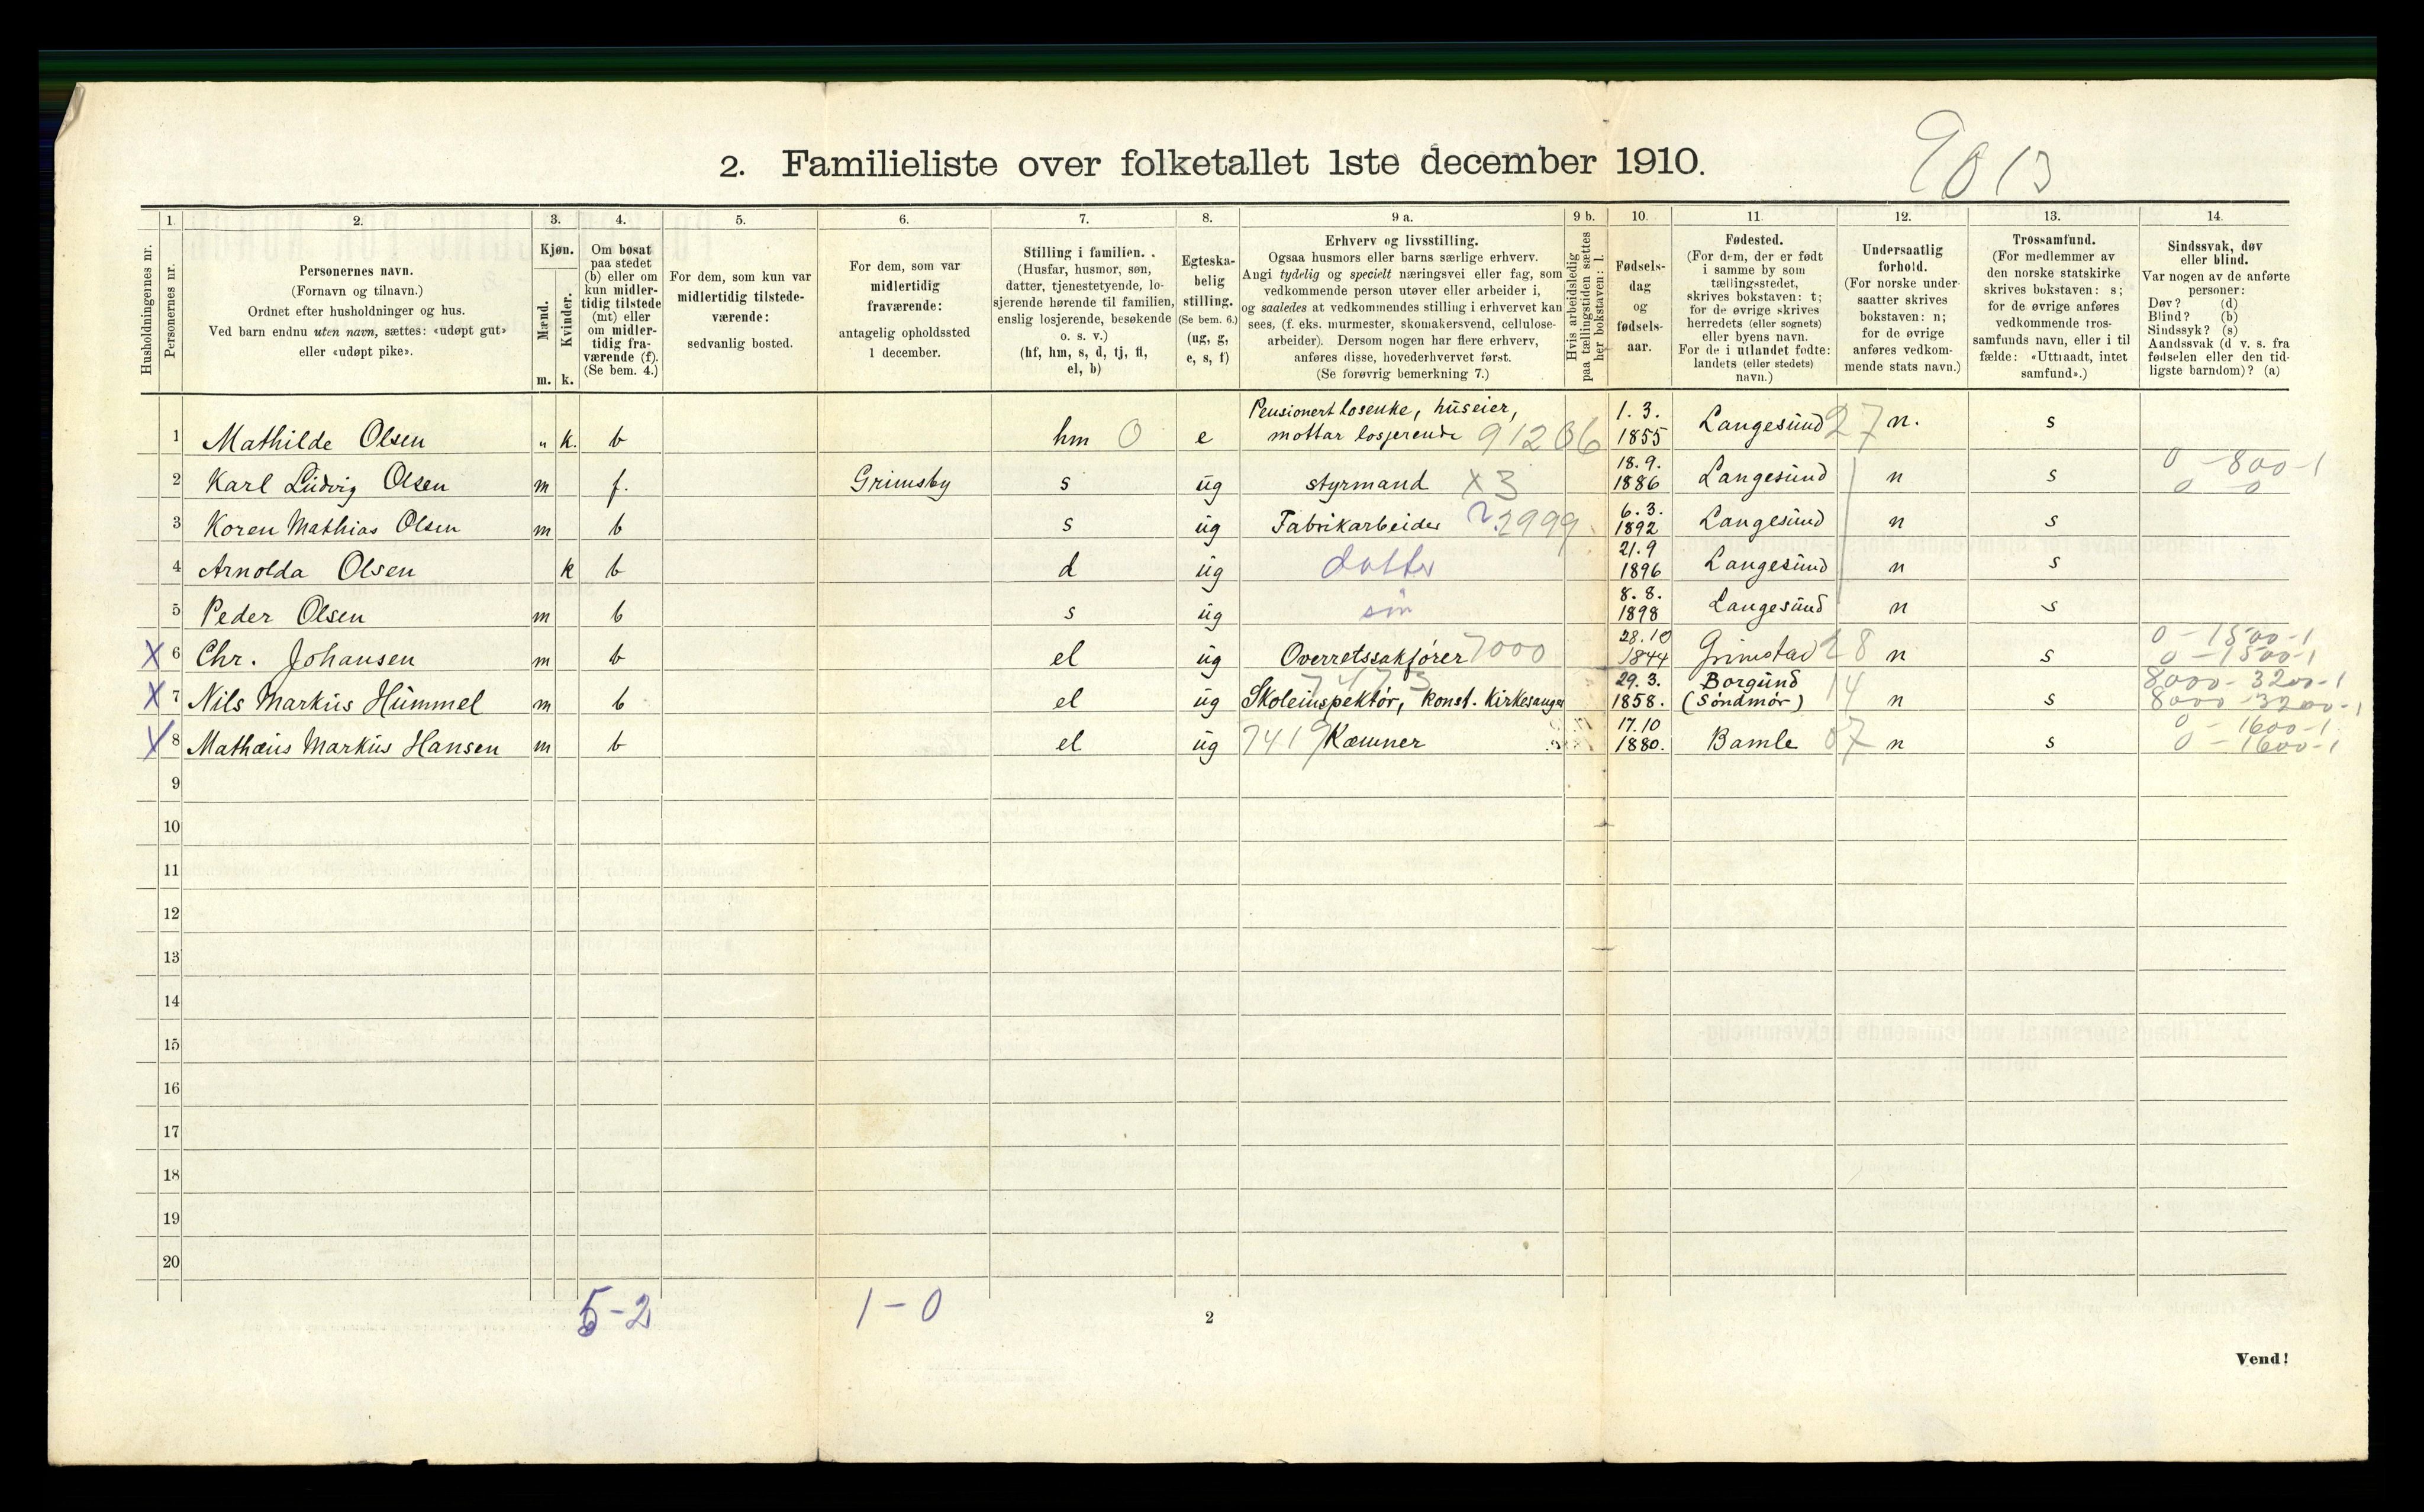 2. Familieliste over folketallet 1ste december 1910.
1. 2. 3. 4. 5. 6. 7. 8. 9 a. 9 b. 10. 11. 12. 13. 14.
Husholdningernes nr.
Personernes nr.
Personernes navn.
(Fornavn og tilnavn.)
Ordnet efter husholdninger og hus.
Ved barn endnu uten navn, sættes: «udøpt gut»
eller «udøpt pike».
Kjøn.
Mænd.
Kvinder.
m. k.
Om bosat
paa stedet
(b) eller om
kun midler-
tidig tilstede
(mt) eller
om midler-
tidig fra-
værende (f).
(Se bem. 4.)
For dem, som kun var
midlertidig tilstede-
værende:
sedvanlig bosted.
For dem, som var
midlertidig
fraværende:
antagelig opholdssted
1 december.
Stilling i familien.
(Husfar, husmor, søn,
datter, tjenestetyende, lo-
sjerende hørende til familien,
enslig losjerende, besøkende
o. s. v.)
(hf, hm, s, d, tj, fl,
el, b)
Egteska-
belig
stilling.
(Se bem. 6.)
(ug, g,
e, s, f)
Erhverv og livsstilling.
Ogsaa husmors eller barns særlige erhverv.
Angi tydelig og specielt næringsvei eller fag, som
vedkommende person utøver eller arbeider i,
og saaledes at vedkommendes stilling i erhvervet kan
sees, (f. eks. murmester, skomakersvend, cellulose-
arbeider). Dersom nogen har flere erhverv,
anføres disse, hovederhvervet først.
(Se forøvrig bemerkning 7.)
Hvis arbeidsledig
paa tællingstiden sættes
her bokstaven: l.
Fødsels-
dag
og
fødsels-
aar.
Fødested.
(For dem, der er født
i samme by som
tællingsstedet,
skrives bokstaven: t;
for de øvrige skrives
herredets (eller sognets)
eller byens navn.
For de i utlandet fødte:
landets (eller stedets)
navn.)
Undersaatlig
forhold.
(For norske under-
saatter skrives
bokstaven: n;
for de øvrige
anføres vedkom-
mende stats navn.)
Trossamfund.
(For medlemmer av
den norske statskirke
skrives bokstaven: s;
for de øvrige anføres
vedkommende tros-
samfunds navn, eller i til-
fælde: «Uttraadt, intet
samfund».)
Sindssvak, døv
eller blind.
Var nogen av de anførte
personer:
Døv? (d)
Blind? (b)
Sindssyk? (s)
Aandssvak (d v. s. fra
fødselen eller den tid-
ligste barndom)? (a)
Pensionert losenke, huseier,
1 Mathilde Olsen „ k. b hm 0 e mottar losjerende 1. 3. 1855 Langesund 27 n. s
2 Karl Ludvig Olsen m f. Grimsby s ug styrmand x 3 18. 9. 1886 Langesund n s 0 - 800 - 1
0 0
3 Koren Mathias Olsen m b s ug Fabrikarbeider 2999 6. 3. 1892 Langesund n s
4 Arnolda Olsen k b d ug datter 21. 9 1896 Langesund n s
5 Peder Olsen m b s ug sön 8. 8. 1898 Langesund n s
X 6 Chr. Johansen m b el ug Overretssakfører 7000 28. 10 1844 Grimstad 28 n s 0 - 1500 - 1
0 - 1500 - 1
X 7 Nils Markus Hummel m b el ug 7473 Skoleinspektør, konst. kirkesanger 29. 3. 1858. Borgund (Søndmør) 14 n s 8000 - 3200 - 1
8000 - 3200 - 1
X 8 Mathæus Markus Hansen m b el ug 7419 Kæmner 17. 10 1880. Bamle 07 n s 0 - 1600 - 1
0 - 1600 - 1
9
10
11
12
13
14
15
16
17
18
19
20
5 - 2 1 - 0
2
Vend!